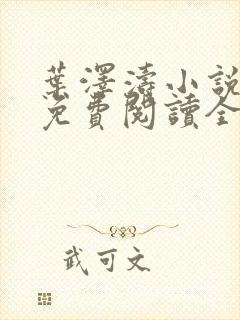 葉澤濤小説
免費閱讀全
武可文